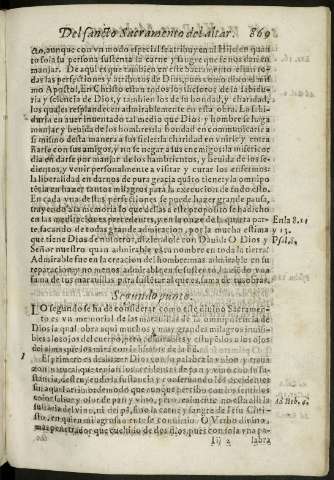 Del sancto Sacramento del altar. 869
cto, aunque con vn modo especial se atribuyen al Hijo en quanto
sola su persona sustenta la carne y sangre que se nos da en
manjar. De aqui es que tambien en este Sacramento
las perfecciones y atributos de Dios, pues como dixo el mismo
Apostol, En Christo estan todos los thesoros de la sabiduria
y sciencia de Dios, y tambien los de la bondad, y charidad,
los quales resplandecen admirablemente en esta obra. La sabiduria
en auer inuentado tal medio que Dios y hombre se haga
manjar y beuida de los hombres: la bondad en communicarse a
si mismo desta manera a sus fieles: la charidad en vnirse y
con sus amigos, y no se negar a sus enemigos: la misericordia
en darse por manjar de los hambrientos, y beuida de los sedientos,
y venir personalmente a visitar y curar los enfermos:
la liberalidad en darnos de pura gracia quito tiene: y la omnipotencia
en hazer tantos milagros para la execucion de todo esto.
En cada vna destas perfecciones se puede hazer grande pausa,
trayendo a la memoria lo que dellas a este proposito se ha dicho
en las meditaciones precedentes, y en la onze de la quarta parte,
sacando de todas grande admiracion, por la mucha estima
que tiene Dios de nosotros, diziendole con Dauid: O Dios y
Señor nuestro quan admirable es tu nombre en toda la tierra!
Admirable fue en la creacion del hombre: mas admirable en su
reparacion: y no menos admirable en su sustento, haziendo vna
suma de tus marauillas para sustentar al que es suma de tus obras.
En la 8. 11
y 13.
Psal. 8.
Segundo punto.
LO segundo se ha de considerar como este diuino Sacramento
es vn memorial de las marauillas de la omnipotencia de
Dios la qual obra aqui muchos y muy grandes milagros inuisibles
a los ojos del cuerpo, pero admirables y estupendos a los ojos
del alma que los mira con la lumbre de la Fè.
1 El primero es deshazer Dios con su palabra la vnion y trauazon
natural que tenian los accidentes de pan y vino con su sustancia,
destruyendo la sustancia y conseruando los accidentes
aqui
color sabor y olor de pan y vino, pero realmente no esta alli sustancia
del vino, ni del pã, sino la carne y sangre de Iesu Christo,
en quien mi agrauarte te se conuirtio. O Verbo diuino,
mas penetrador que cuchillo de dos filos, pues con sola vna palabra
Ad Heb. 4.
Iij 2 labra